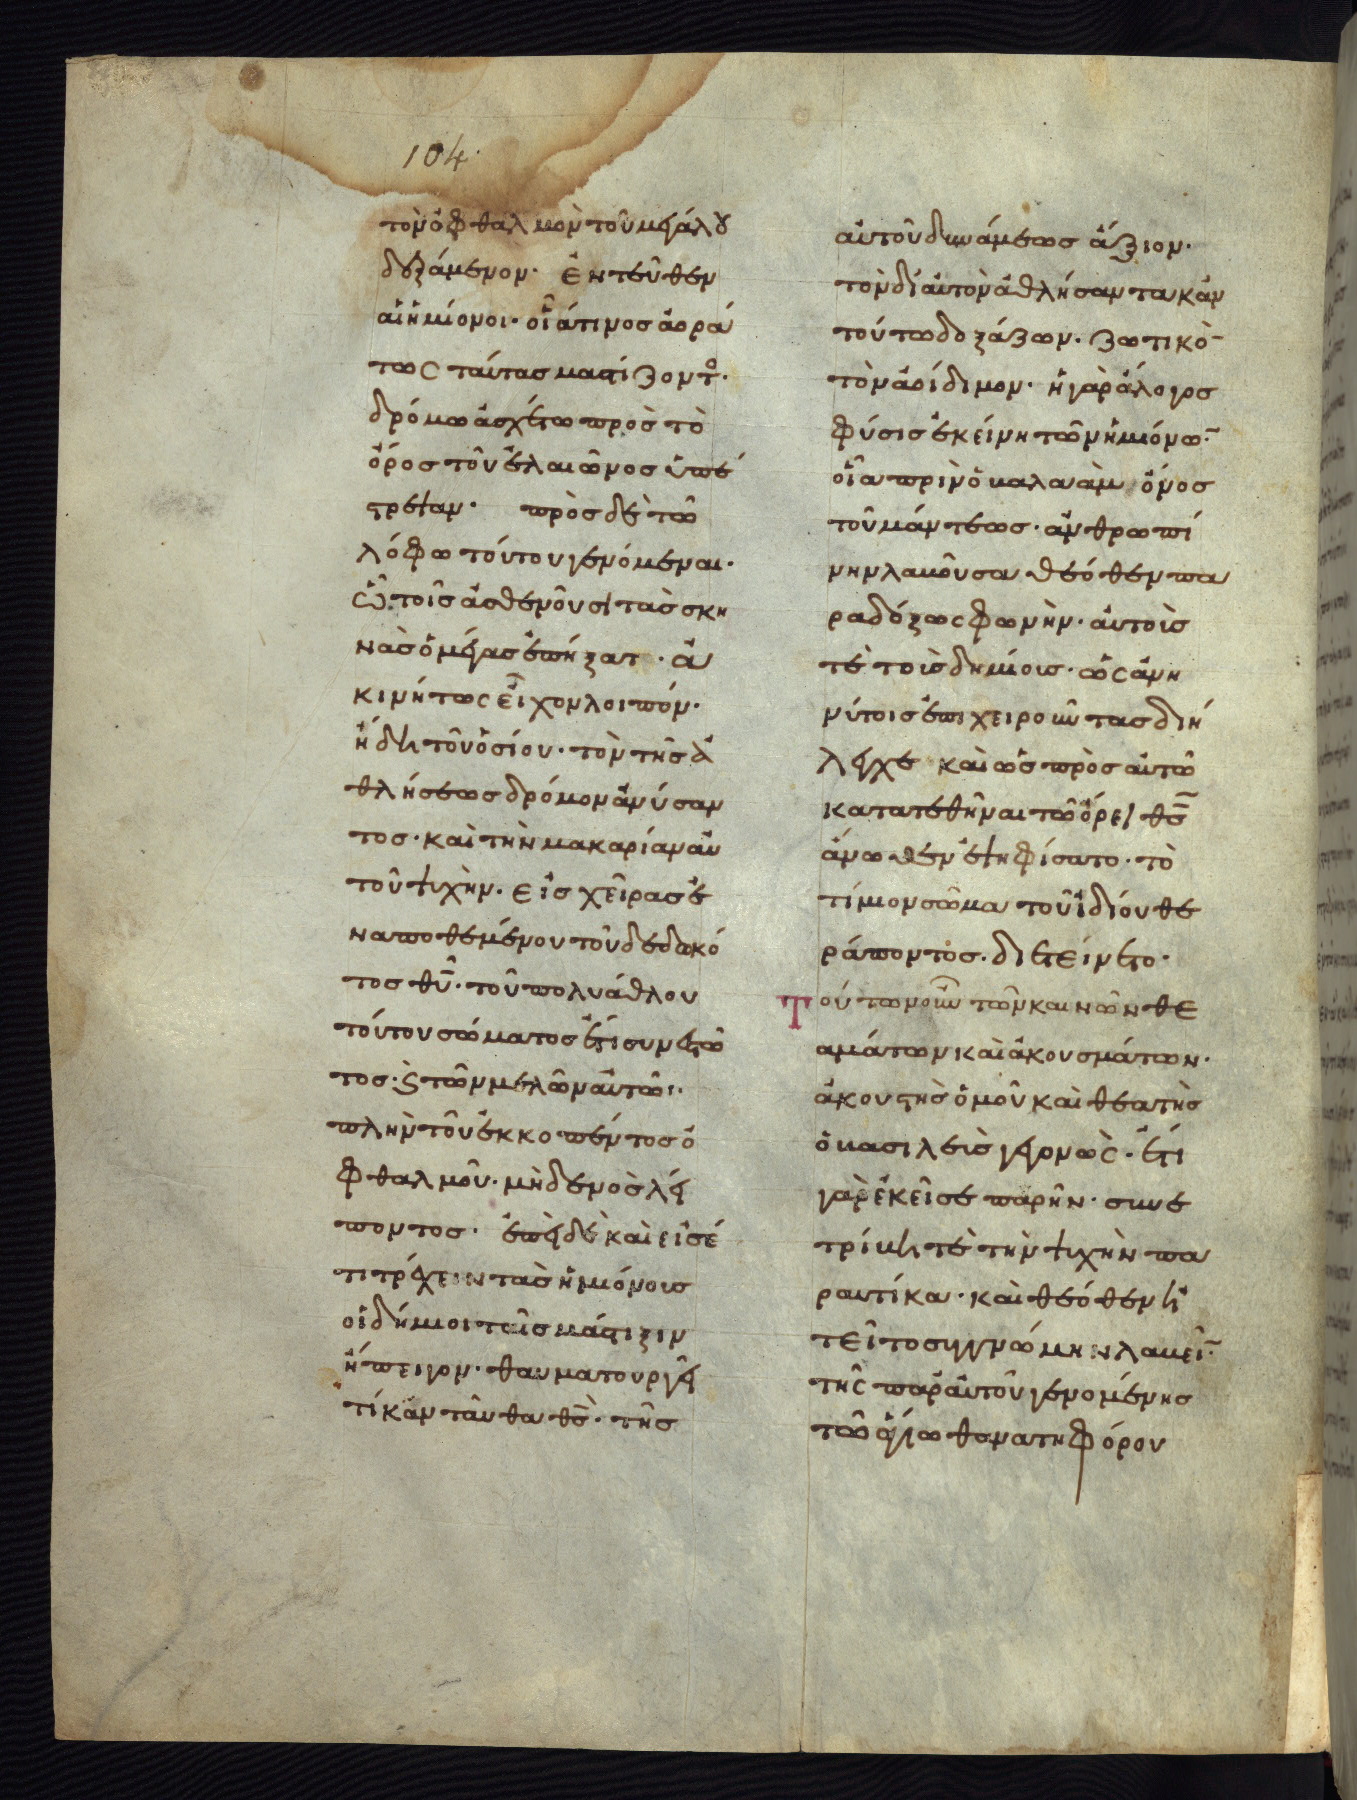 104.
τὸν ὀφθαλμὸν τοῦ μεγάλου
δοξάμενον. ἐντεῦθεν
αἱ ἡμίονοι. οἷά τινος ἀορά
τως ταύτας μαστίζοντος.
δρόμω ἀσχέτω πρὸς τὸ
ὄρος τοῦ ἐλαιῶνος ὑπέ
στρεψαν. πρὸς δὲ τῶ
λόφω τούτου γενόμεναι.
ὧ τοῖς ἀσθενοῦσι τὰς σκη
νὰς ὁ μέγας ἐπήξατο. ἀ
κινήτως εἶχον λοιπόν.
ἤδη τοῦ ὁσίου. τὸν τῆς ἀ
θλήσεως δρόμον ἀνύσαν
τος. καὶ τὴν μακαρίαν αὐ
τοῦ ψυχὴν. εἰς χεῖρας ἐ
ναποθεμένου τοῦ δεδωκό
τος θυ. τοῦ πολυάθλου
τούτου σώματος ἔτι συνεστῶ
τος. καὶ τῶν μελῶν αὐτῶ.
πλὴν τοῦ ἐκκοπέντος ὀ
φθαλμοῦ. μὴδενὸς λεί
ποντος. ἐπεὶ δὲ καὶ εἰσέ
τι τρέχειν τὰς ἡμιόνους
οἱ δήμιοι ταῖς μάστιξιν
ἤπειγον. θαυματουργεῖ
τί κἀνταῦθα θς. τῆς
αὐτοῦ δυνάμεως ἄξιον.
τὸν δι αὐτὸν ἀθλήσαντα κἀν
τούτω δοξάζων. ζωτικὸν
τὸν ἀοίδιμον. ἡ γὰρ ἄλογος
φύσις ἐκείνη τῶν ἡμιόνων.
οἷα πρὶν ὁ βαλαὰμ ὄνος
τοῦ μάντεως. ἀνθρωπί
νην λαβοῦσα θεόθεν πα
ραδόξως φωνὴν. αὐτοῖς
τὲ τοῖς δημίοις. ὡς ἀνη
νύτοις ἐπιχειροῦντας διή
λεγχε καὶ ὡς πρὸς αὐτῶ
κατατεθῆναι τῶ ὄρει θς
ἄνωθεν ἐψηφίσατο. τὸ
τίμιον σῶμα τοῦ ἰδίου θε
ράποντος. διετείνετο.
Τούτων οὖν τῶν καινῶν θε
αμάτων καὶ ἀκουσμάτων.
ἀκουστὴς ὁμοῦ καὶ θεατὴς
ὁ βασιλεὺς γεγονὼς. ἔτι
γὰρ ἐκεῖσε παρῆν. συνε
τρίβη τὲ τὴν ψυχὴν πα
ραυτίκα. καὶ θεόθεν ἠ
τεῖτο συγγνώμην λαβεῖν.
τῆς παρ αὐτοῦ γενομένης
τῶ ἁγίω θανατηφόρου